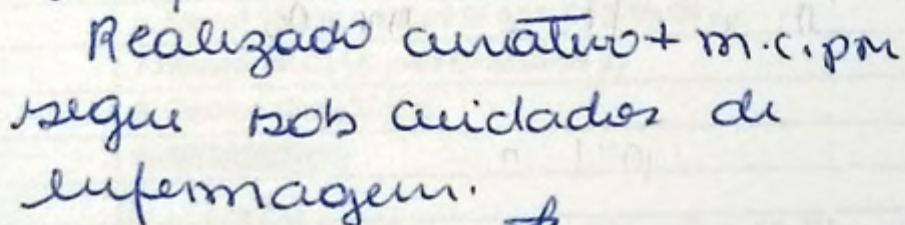 Realizado curativo + m.c.pm
segue sob cuidados de
enfermagem.